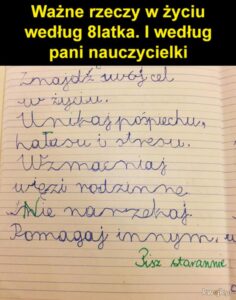 Ważne rzeczy w życiu
według 8latka. I według
pani nauczycielki
Znajdź swój cel
w życiu.
Unikaj pośpiechu,
hałasu i stresu.
Wzmacniaj
więzi rodzinne
Nie narzekaj
Pomagaj innym.
Pisz starannie